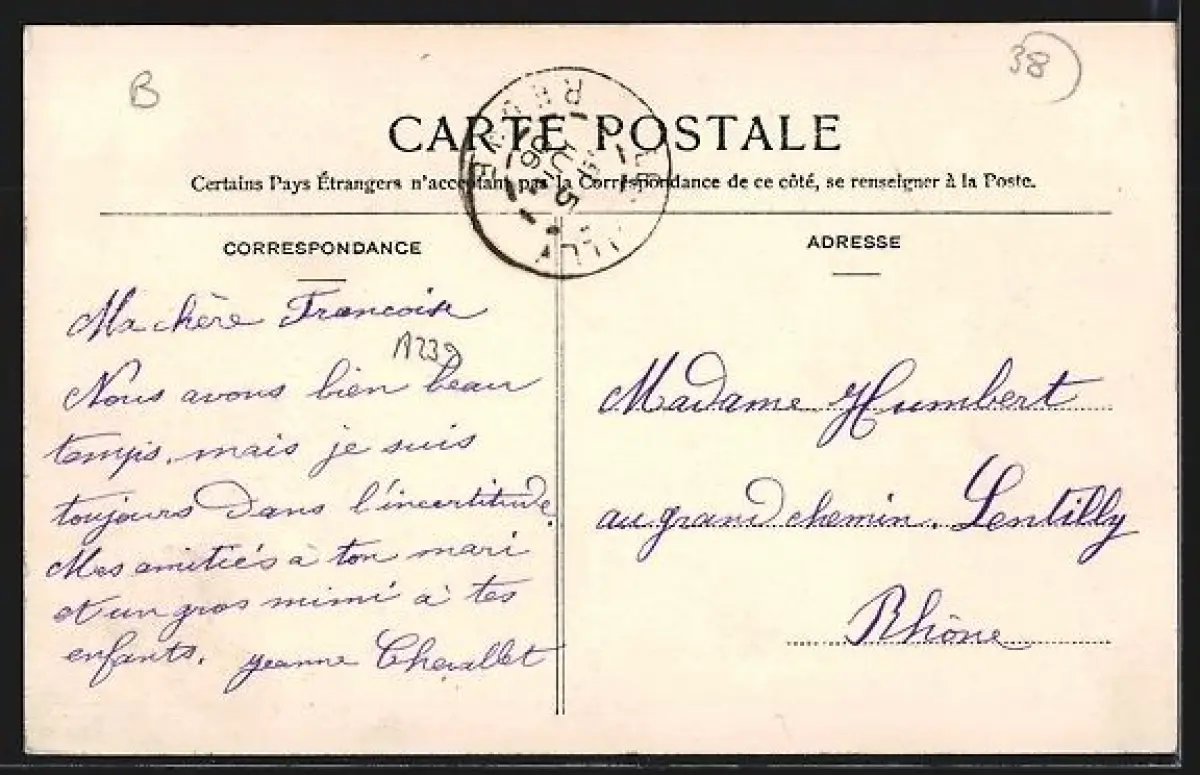 B
38
CARTE POSTALE
Certains Pays Étrangers n'acceptent pas la Correspondance de ce côté, se renseigner à la Poste.
CORRESPONDANCE
Ma chère Francoise
A239
Nous avons bien beau
temps, mais je suis
toujours dans l'incertitude.
Mes amitiés à ton mari
et un gros mimi à tes
enfants. Jeanne Chevallet
ADRESSE
Madame Humbert
au grand chemin. Lentilly
Rhône